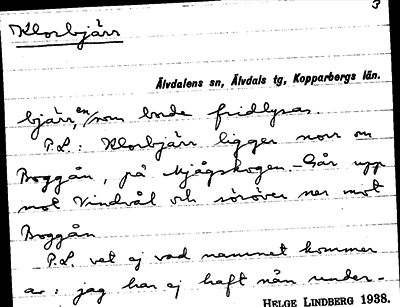 3
Klorbjärr
Älvdalens sn, Älvdals tg, Kopparbergs län.
bjärr, en/som borde fridlysas.
P.L.: Klorbjärr ligger norr om
Boggån, på Mjågskogen. - Går upp
mot Vindvål och söröver ner mot
Boggån
P.L. vet ej vad namnet kommer
av: jag har ej haft nån under-
HELGE LINDBERG 1938.